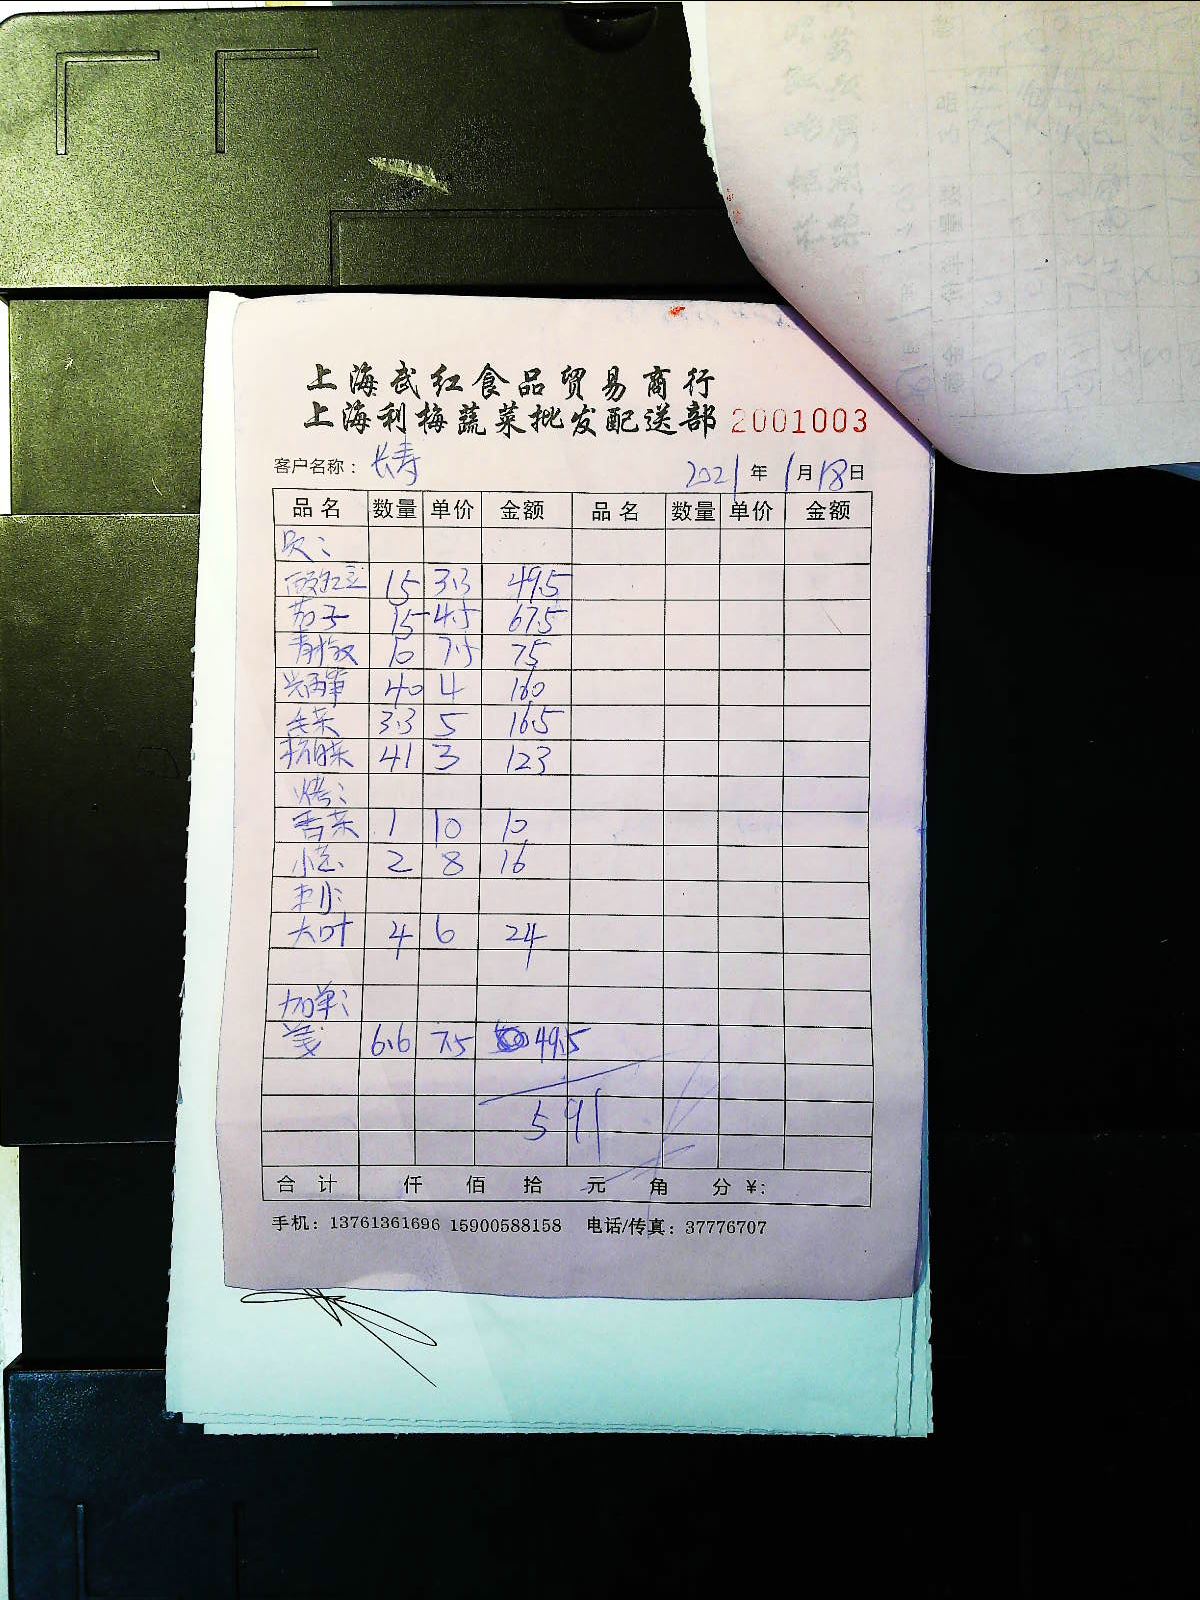 上海武红食品贸易商行
上海利梅蔬菜批发配送部 2001003
客户名称：长寿 2021年1月18日
品名 数量 单价 金额 品名 数量 单价 金额
15 3.3 49.5
茄子 15 4.5 67.5
青椒 10 7.5 75
40 4 160
毛菜 3.3 5 16.5
杭白菜 41 3 123
烤：
香菜 1 10 10
小葱 2 8 16
刺：
大叶 4 6 24
加单：
姜 6.6 7.5 49.5
591
合计 仟 佰 拾 元 角 分 ¥:
手机：13761361696 15900588158 电话/传真：37776707